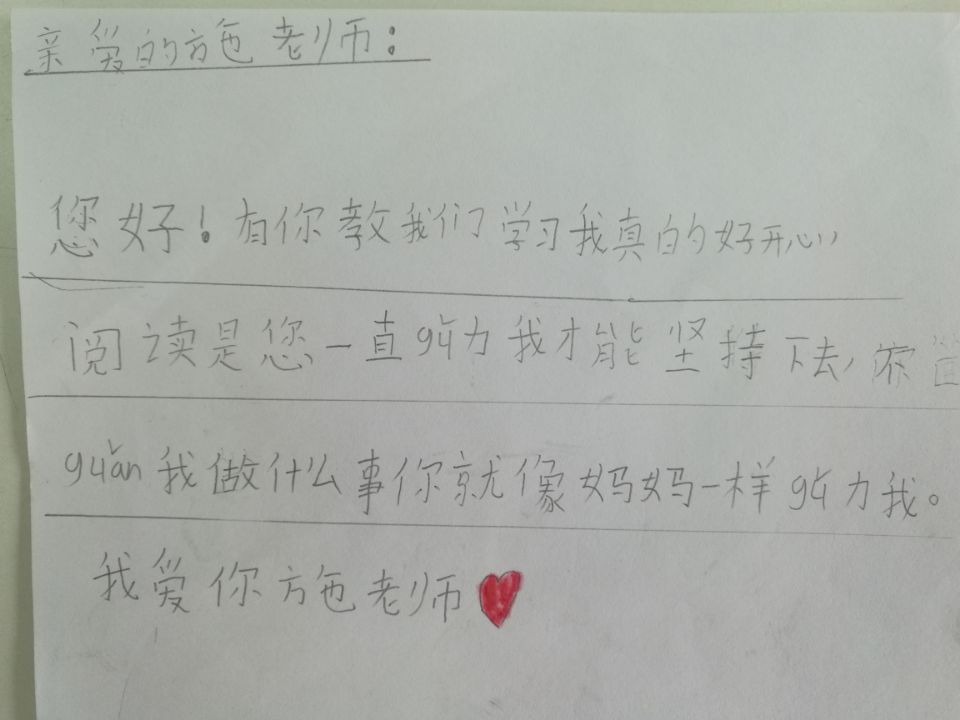 亲爱的方老师：
您好！有你教我们学习我真的好开心，
阅读是您一直gǔ力我才能坚持下去，你
guǎn我做什么事你就像妈妈一样gǔ力我。
我爱你方老师